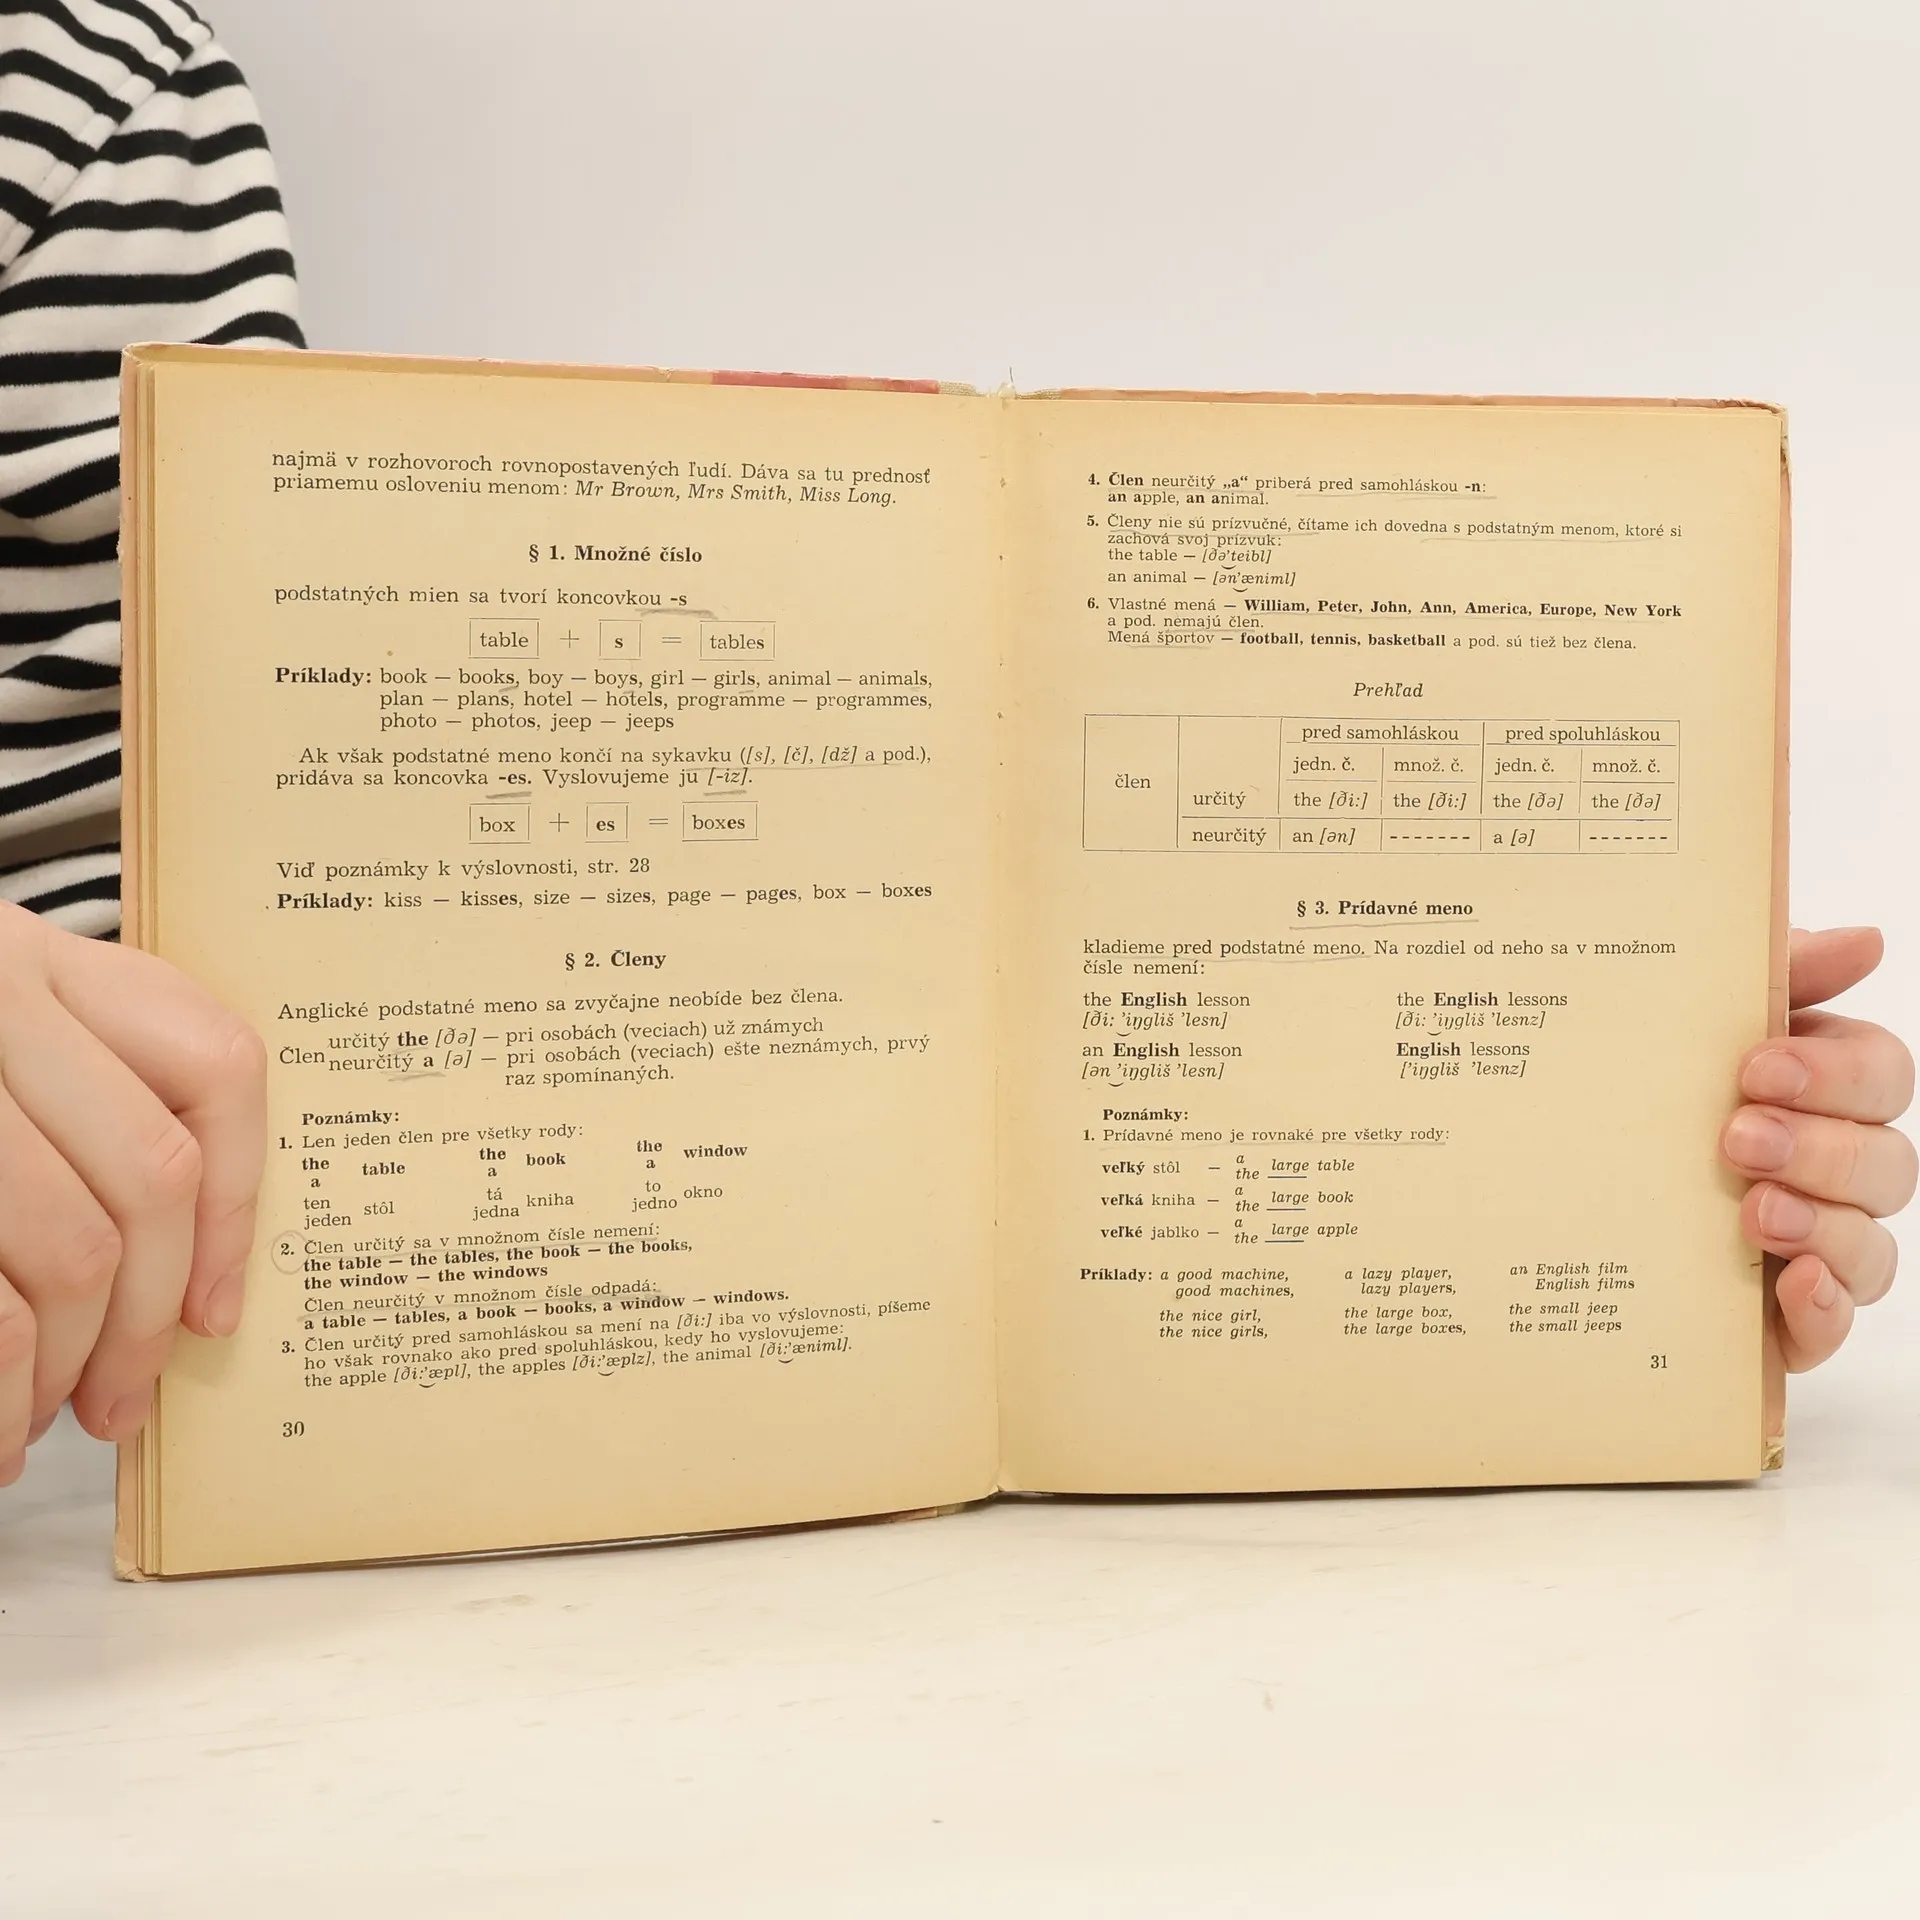 najmä v rozhovoroch rovnopostavených ľudí. Dáva sa tu prednosť
priamemu osloveniu menom: Mr Brown, Mrs Smith, Miss Long.
§ 1. Množné číslo
podstatných mien sa tvorí koncovkou -s
table + s = tables
Príklady: book — books, boy — boys, girl — girls, animal — animals,
plan — plans, hotel — hotels, programme — programmes,
photo — photos, jeep — jeeps
Ak však podstatné meno končí na sykavku ([s], [č], [dž] a pod.),
pridáva sa koncovka -es. Vyslovujeme ju [-iz].
box + es = boxes
Viď poznámky k výslovnosti, str. 28
Príklady: kiss — kisses, size — sizes, page — pages, box — boxes
§ 2. Členy
Anglické podstatné meno sa zvyčajne neobíde bez člena.
určitý the [ðə] — pri osobách (veciach) už známych
Člen
neurčitý a [ə] — pri osobách (veciach) ešte neznámych, prvý
raz spomínaných.
Poznámky:
1. Len jeden člen pre všetky rody:
the the the
table book window
a a a
ten tá to
stôl kniha okno
jeden jedna jedno
2. Člen určitý sa v množnom čísle nemení:
the table — the tables, the book — the books,
the window — the windows
Člen neurčitý v množnom čísle odpadá:
a table — tables, a book — books, a window — windows.
3. Člen určitý pred samohláskou sa mení na [ði:] iba vo výslovnosti, píšeme
ho však rovnako ako pred spoluhláskou, kedy ho vyslovujeme:
the apple [ði:’æpl], the apples [ði:’æplz], the animal [ði:’æniml].
30
4. Člen neurčitý „a“ priberá pred samohláskou -n:
an apple, an animal.
5. Členy nie sú prízvučné, čítame ich dovedna s podstatným menom, ktoré si
zachová svoj prízvuk:
the table — [ðə’teibl]
an animal — [ən’æniml]
6. Vlastné mená — William, Peter, John, Ann, America, Europe, New York
a pod. nemajú člen.
Mená športov — football, tennis, basketball a pod. sú tiež bez člena.
Prehľad
pred samohláskou pred spoluhláskou
jedn. č. množ. č. jedn. č. množ. č.
člen
určitý the [ði:] the [ði:] the [ðə] the [ðə]
neurčitý an [ən] ------- a [ə] -------
§ 3. Prídavné meno
kladieme pred podstatné meno. Na rozdiel od neho sa v množnom
čísle nemení:
the English lesson the English lessons
[ði: ’iŋgliš ’lesn] [ði: ’iŋgliš ’lesnz]
an English lesson English lessons
[ən ’iŋgliš ’lesn] [’iŋgliš ’lesnz]
Poznámky:
1. Prídavné meno je rovnaké pre všetky rody:
a
veľký stôl — large table
the
a
veľká kniha — large book
the
a
veľké jablko — large apple
the
Príklady: a good machine, a lazy player, an English film
good machines, lazy players, English films
the nice girl, the large box, the small jeep
the nice girls, the large boxes, the small jeeps
31